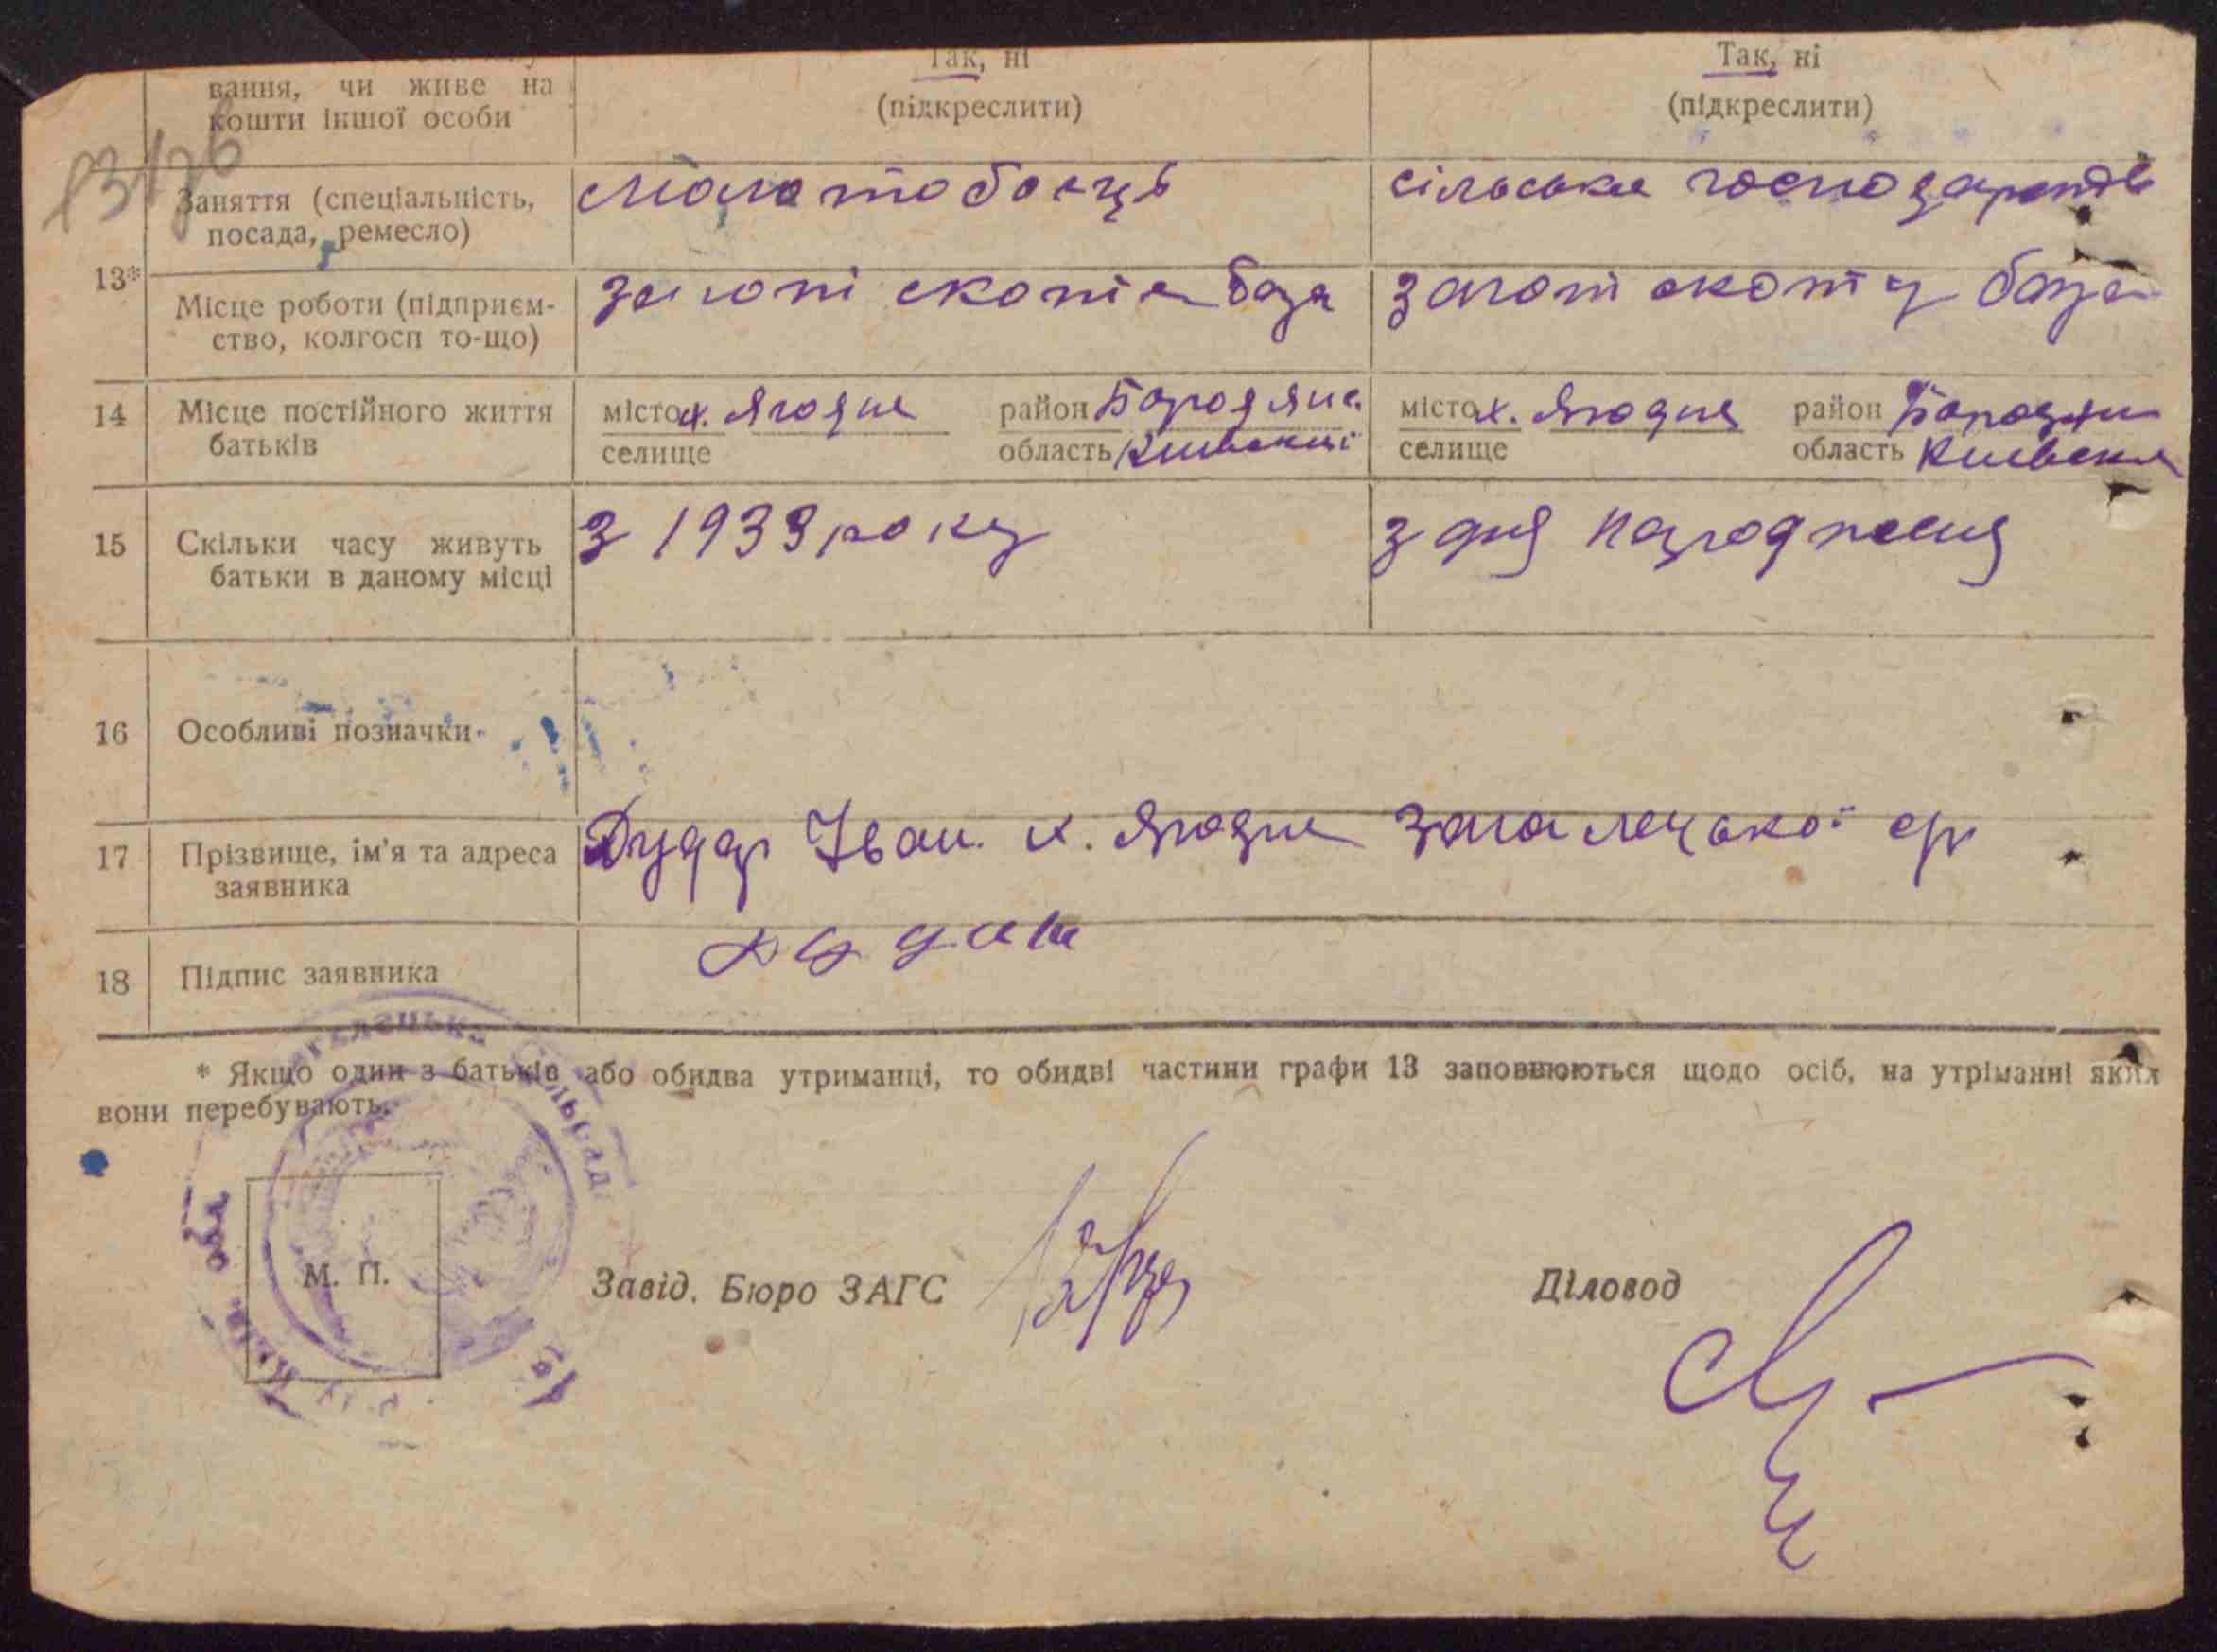 вання, чи живе на
кошти іншої особи
Так, ні
(підкреслити)
Так, ні
(підкреслити)
13/76
13*
Заняття (спеціальність,
посада, ремесло)
молотобоєць
сільське господарство
Місце роботи (підприєм-
ство, колгосп то-що)
база
загот скоту база
14
Місце постійного життя
батьків
місто х. Ягодне
селище
район Бородянс.
область Київської
місто х. Ягодне
селище
район Бородян
область Київська
15
Скільки часу живуть
батьки в даному місці
З 1933 року
З дня народження
16
Особливі позначки
17
Прізвище, ім'я та адреса
заявника
Іван. х. Ягодне Загалецької ср
18
Підпис заявника
* Якщо один з батьків або обидва утриманці, то обидві частини графи 13 заповнюються щодо осіб, на утріманні яких
вони перебувають.
М. П.
Завід. Бюро ЗАГС
Діловод